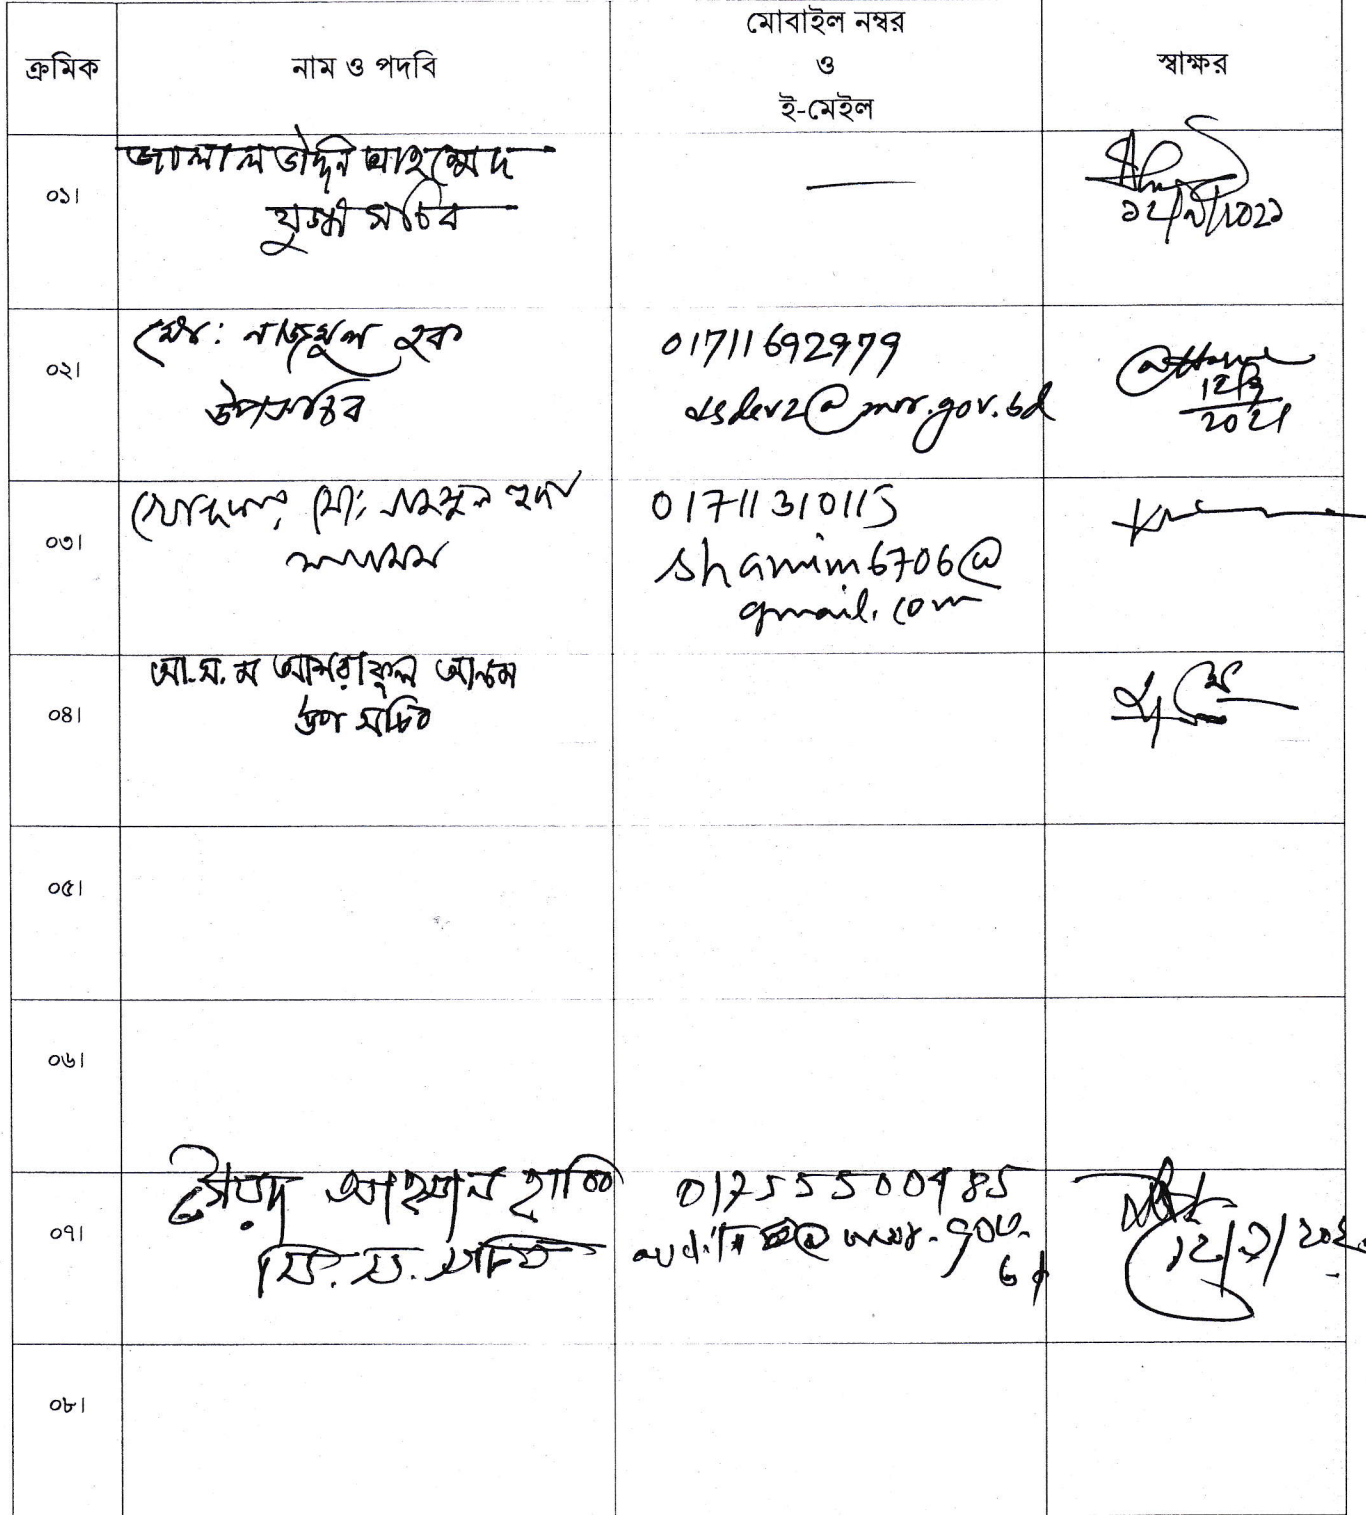 ক্রমিক
নাম ও পদবি
মোবাইল নম্বর
ও
ই-মেইল
স্বাক্ষর
০১।
জালাল উদ্দিন আহম্মেদ
যুগ্ম সচিব
১২/৯/২০২১
০২।
মোঃ নাজমুল হক
উপসচিব
01711692979
dsdev2@mor.gov.bd
12/9
2021
০৩।
মোঃ শামসুল হুদা
01711310115
shamim6706@
gmail.com
০৪।
আ.স.ম আশরাফুল আলম
উপ সচিব
০৫।
০৬।
০৭।
সৈয়দ আহসান হাবিব
সি. স. সচিব
01755500485
gov.
bd
০৮।